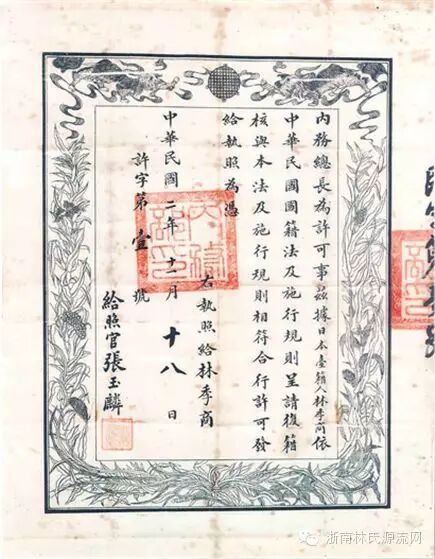 內務總長為許可事茲據日本臺籍人林季商依
中華民國國籍法及施行規則呈請復籍
核與本法及施行規則相符合行許可發
給執照為憑
右執照給林季商
中華民國二年十一月十八日
許字第壹號
給照官張玉麟
浙南林氏源流网